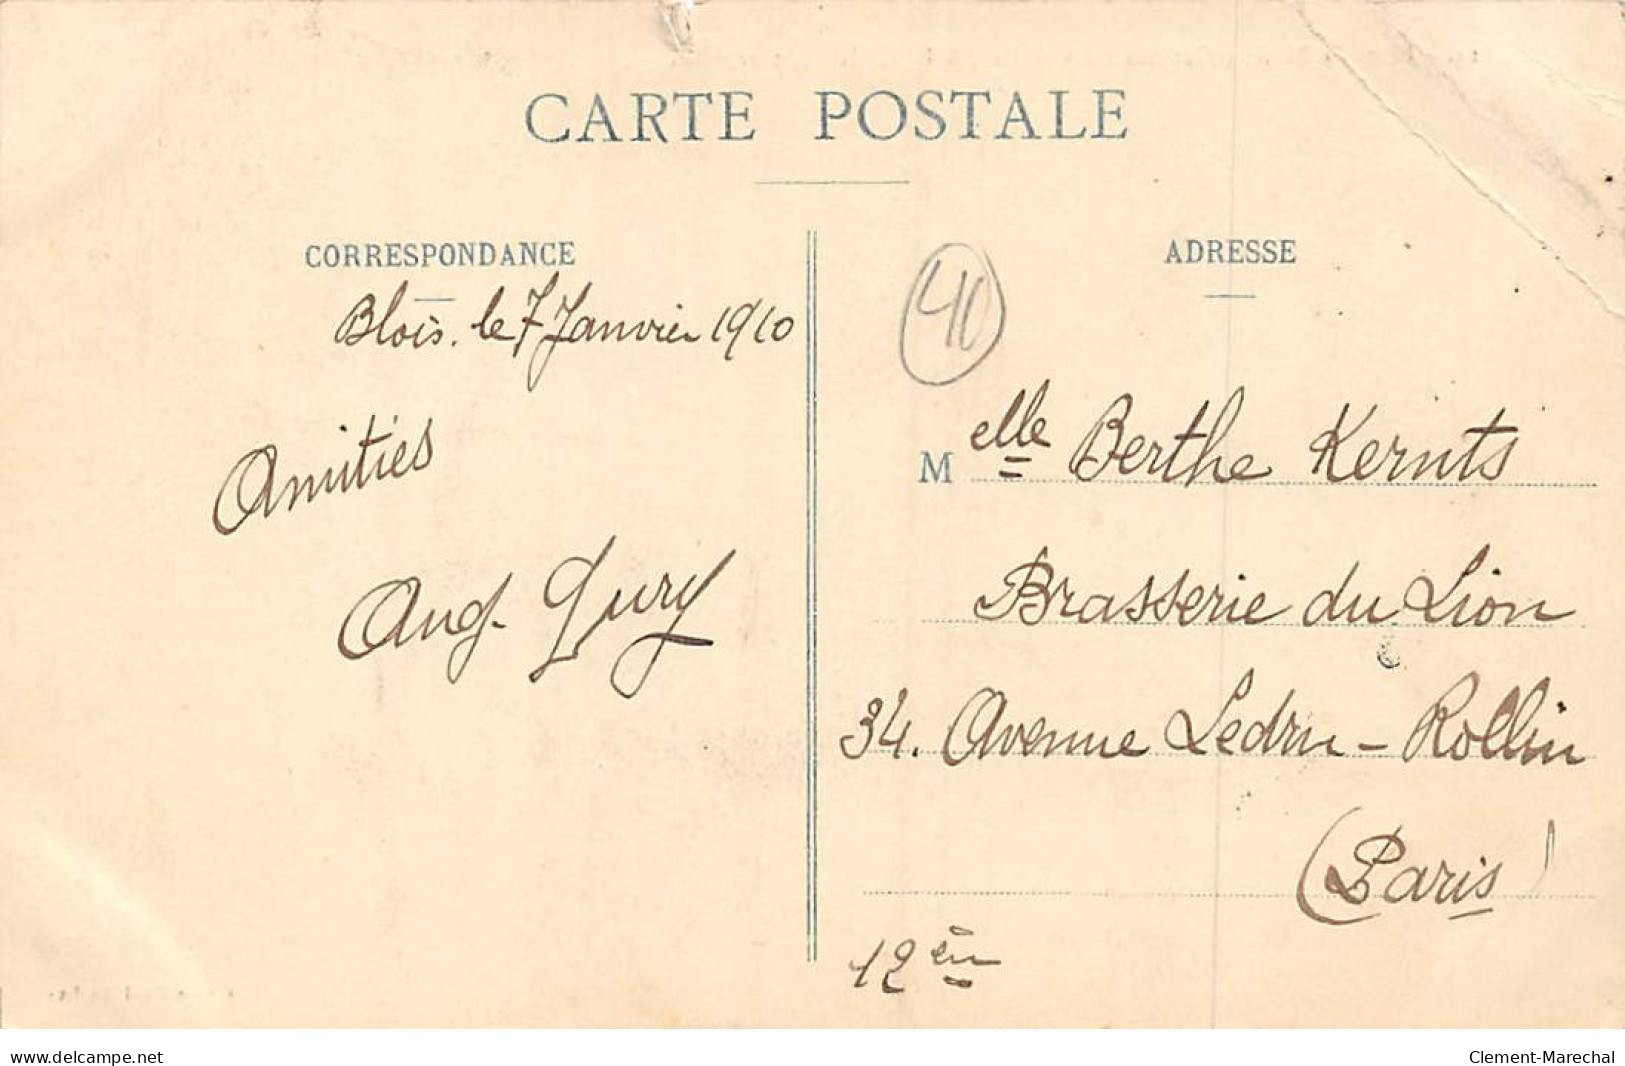 CARTE POSTALE
CORRESPONDANCE
ADRESSE
Blois. le 7 Janvier 1910
Amitiés
Aug.
M elle Berthe Kernts
Brasserie du Lion
34. Avenue Ledru-Rollin
(Paris)
12 èm
www.delcampe.net
Clement-Marechal